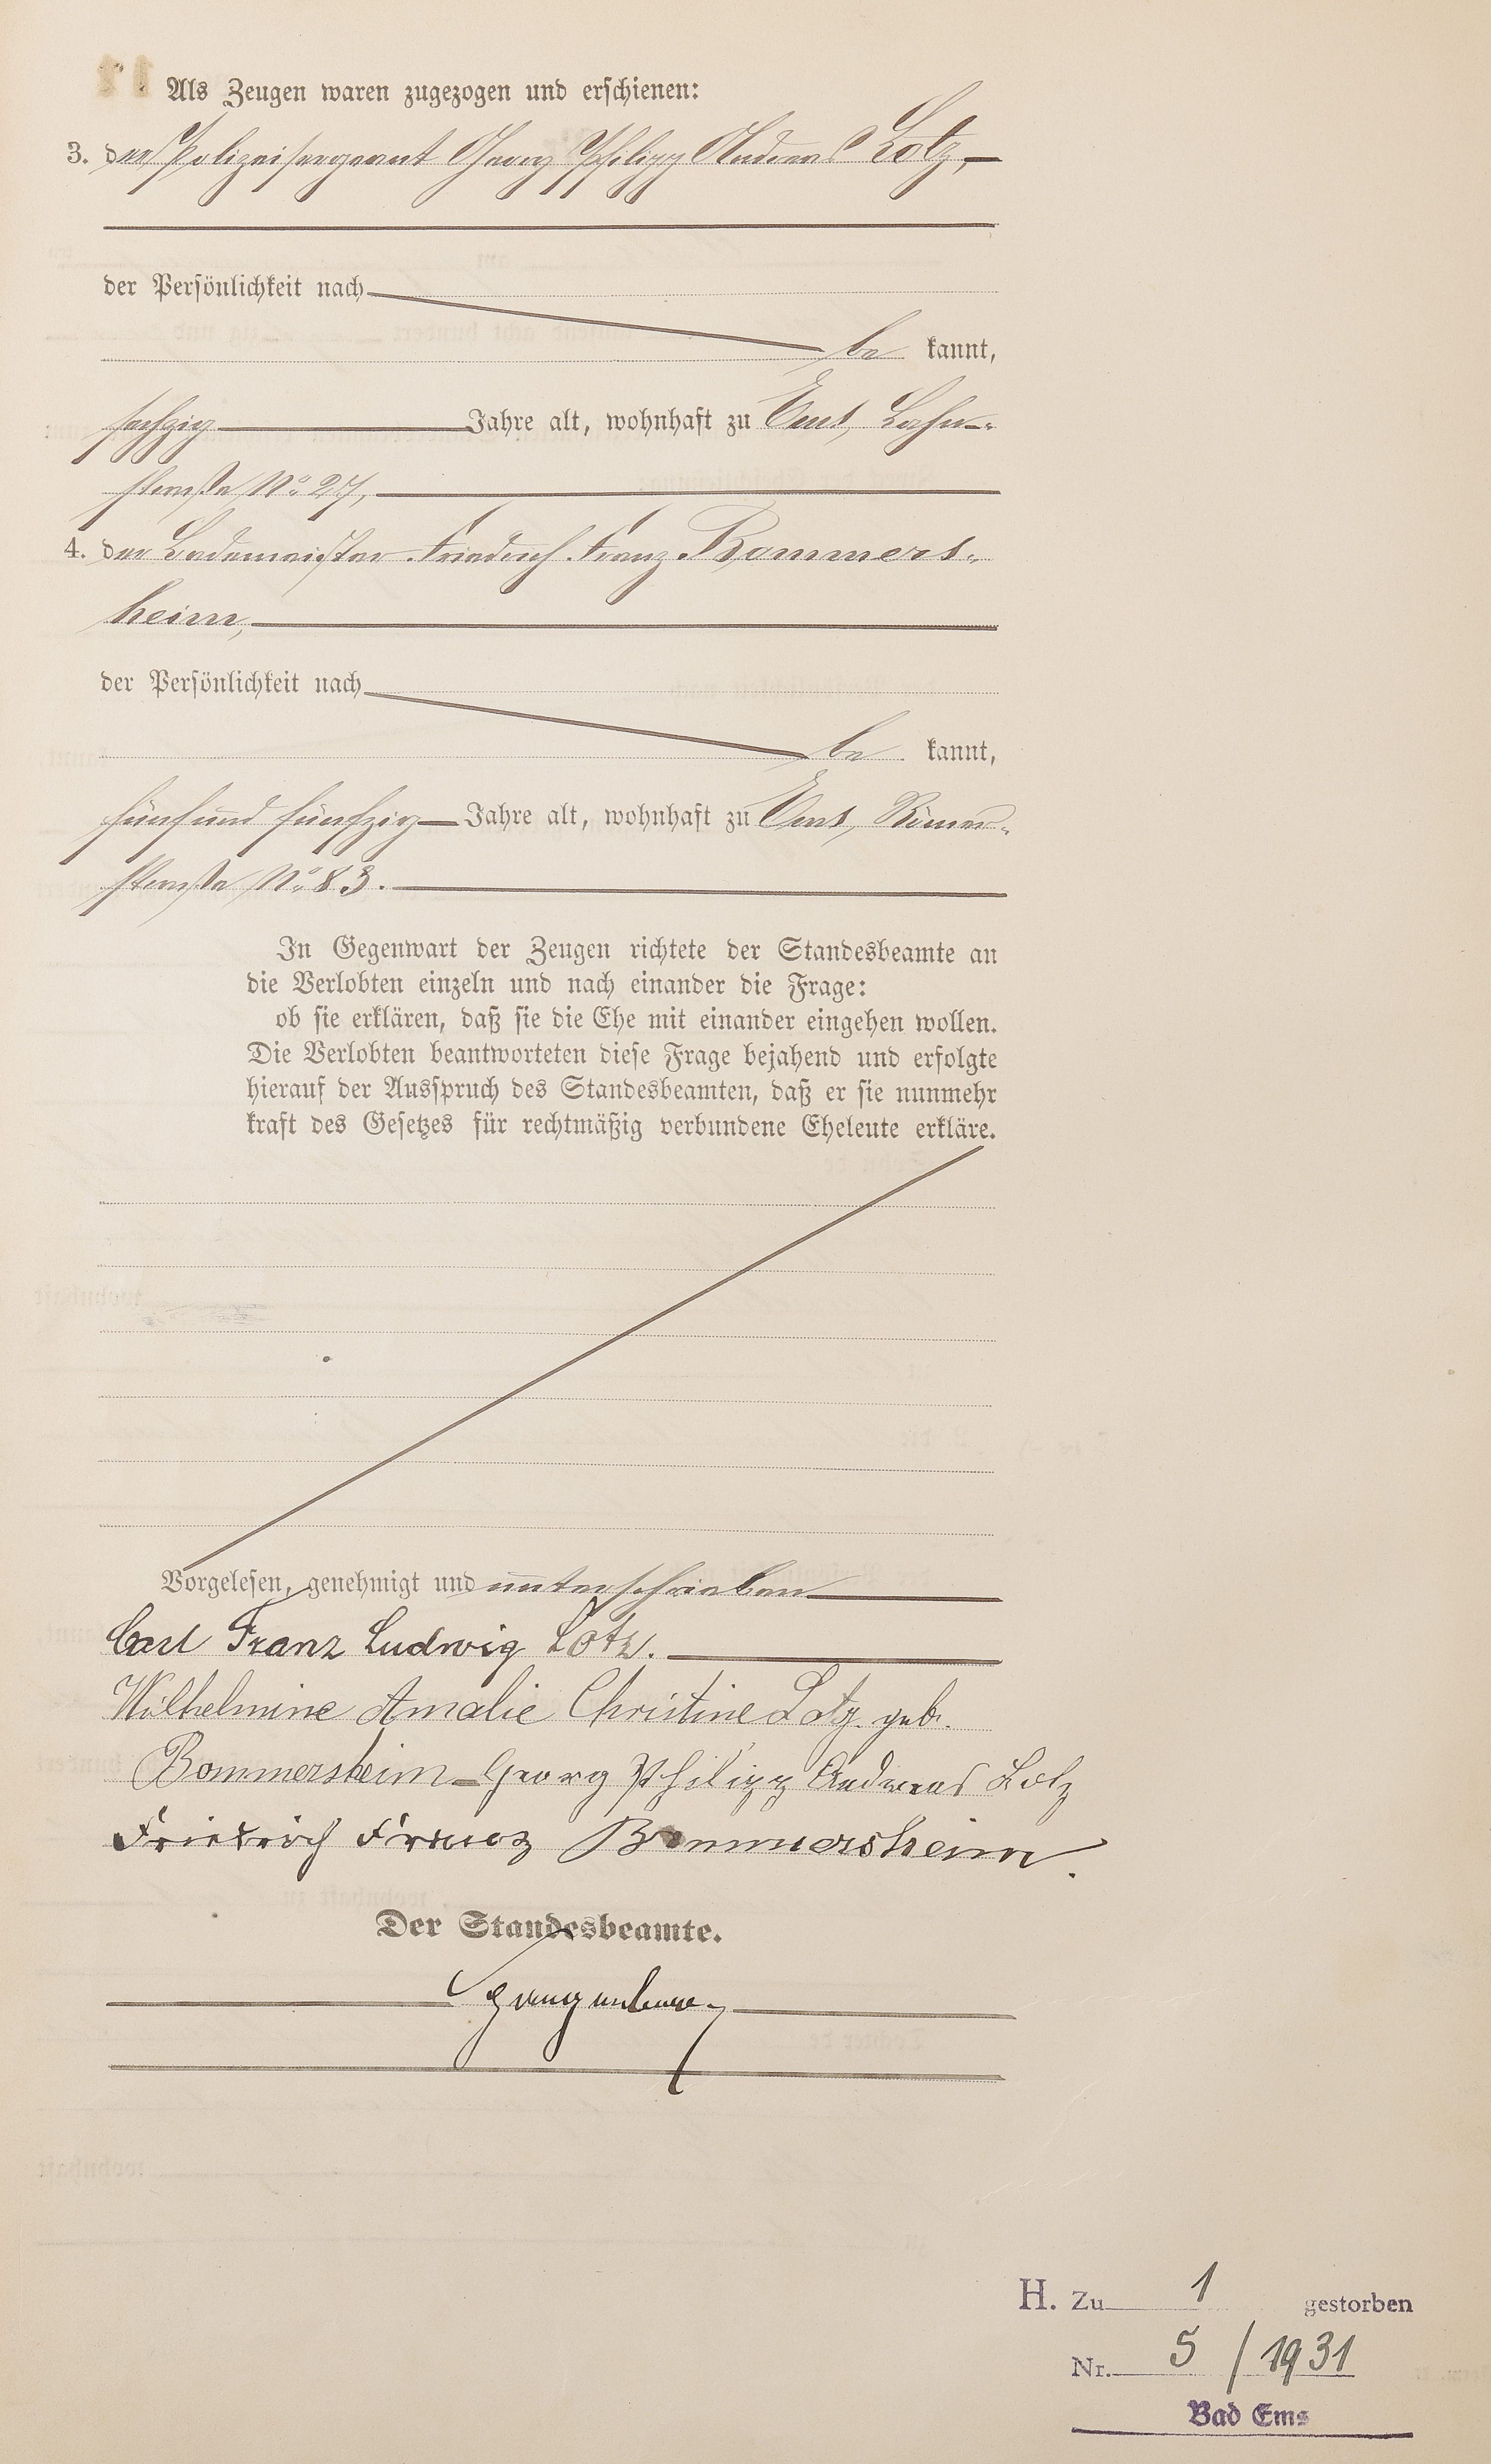 Als Zeugen waren zugezogen und erschienen:
3. der Polizeisergeant Georg Philipp Andreas Lotz,
der Persönlichkeit nach
be kannt,
sechzig Jahre alt, wohnhaft zu Ems, Lahn-
straße No 27,
4. der Bademeister Friedrich Franz Bommers-
heim,
der Persönlichkeit nach
be kannt,
fünfundfünfzig Jahre alt, wohnhaft zu Ems, Römer-
straße No 83.
In Gegenwart der Zeugen richtete der Standesbeamte an
die Verlobten einzeln und nach einander die Frage:
ob sie erklären, daß sie die Ehe mit einander eingehen wollen.
Die Verlobten beantworteten diese Frage bejahend und erfolgte
hierauf der Ausspruch des Standesbeamten, daß er sie nunmehr
kraft des Gesetzes für rechtmäßig verbundene Eheleute erkläre.
Vorgelesen, genehmigt und unterschrieben
Carl Franz Ludwig Lotz.
Wilhelmine Amalie Christine Lotz geb.
Bommersheim Georg Philipp Andreas Lotz
Friedrich Franz Bommersheim.
Der Standesbeamte.
H. Zu 1 gestorben
Nr. 5 / 1931
Bad Ems